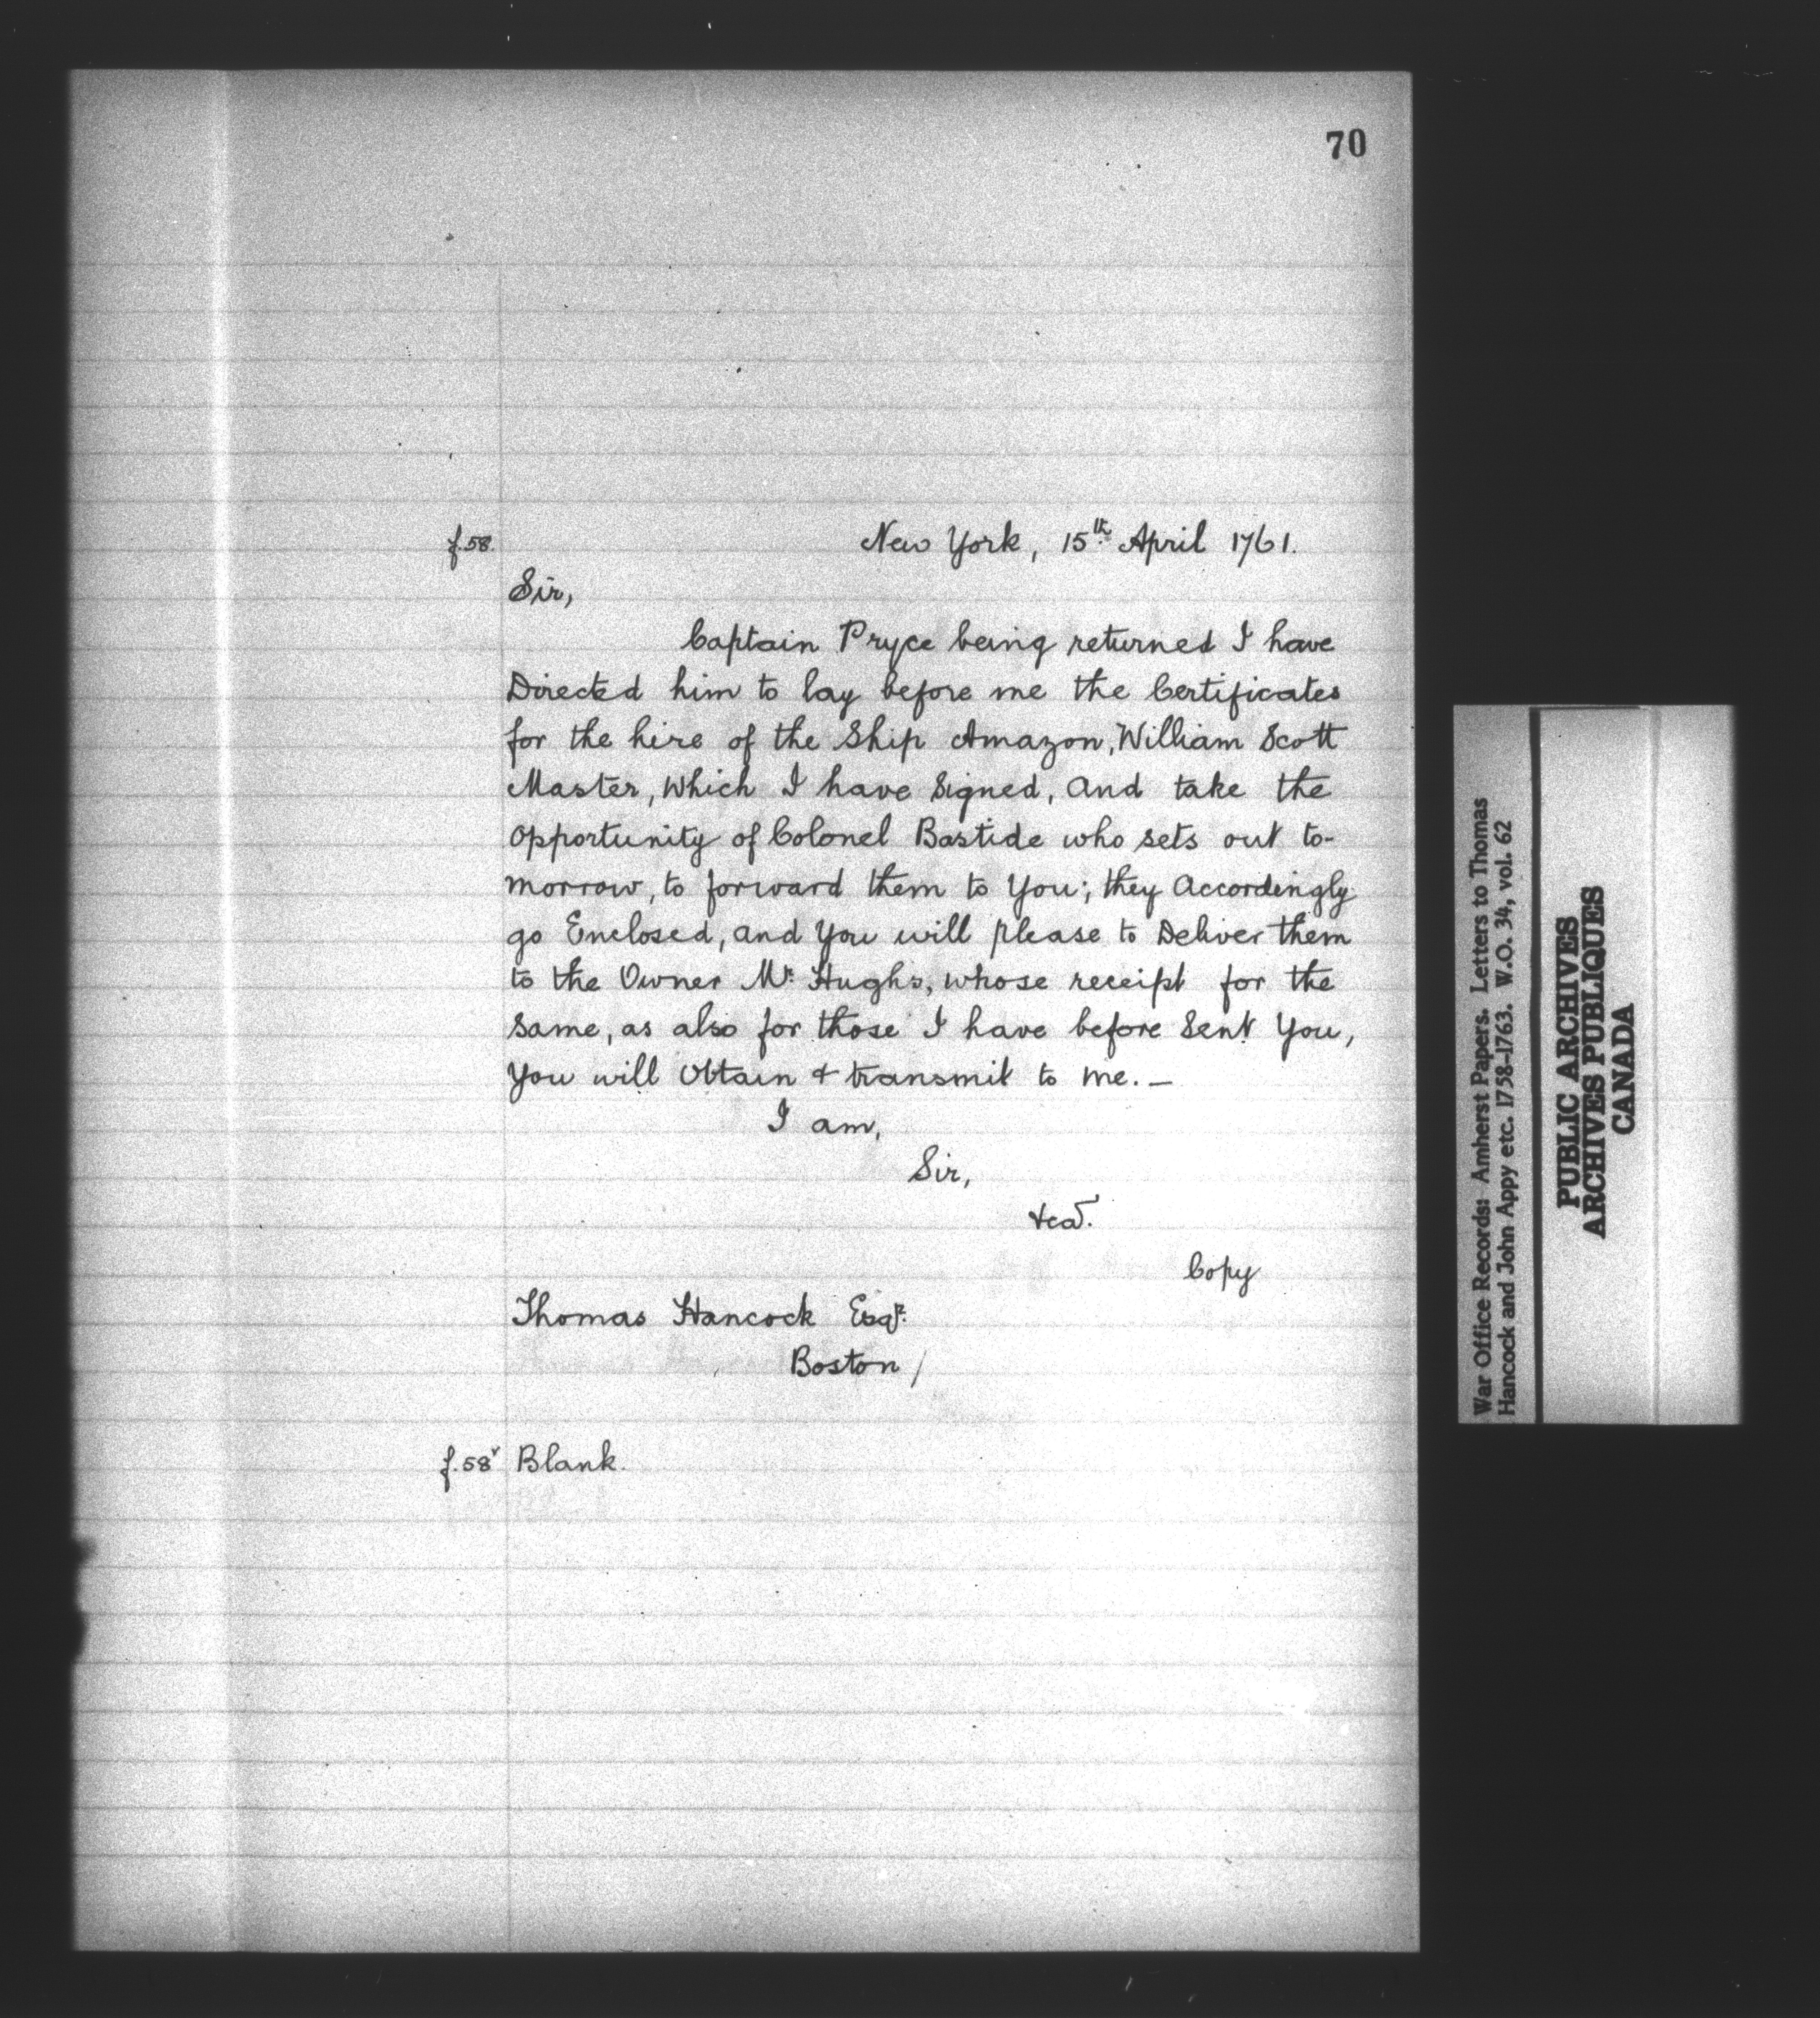 70
f.58.
New York, 15th April 1761.
Sir,
Captain Pryce being returned I have
Directed him to lay before me the Certificates
for the hire of the Ship Amazon, William Scott
Master, Which I have Signed, and take the
Opportunity of Colonel Bastide who sets out to-
morrow, to forward them to You; they Accordingly
go Enclosed, and You will please to Deliver them
to the Owner Mr. Hughs, whose receipt for the
Same, as also for those I have before Sent You,
You will Obtain & transmit to me. —
I am,
Sir,
&ca.
Copy
Thomas Hancock Esqr.
Boston /
f.58v Blank.
War Office Records: Amherst Papers. Letters to Thomas
Hancock and John Appy etc. 1758-1763. W.O. 34, vol. 62
PUBLIC ARCHIVES
ARCHIVES PUBLIQUES
CANADA